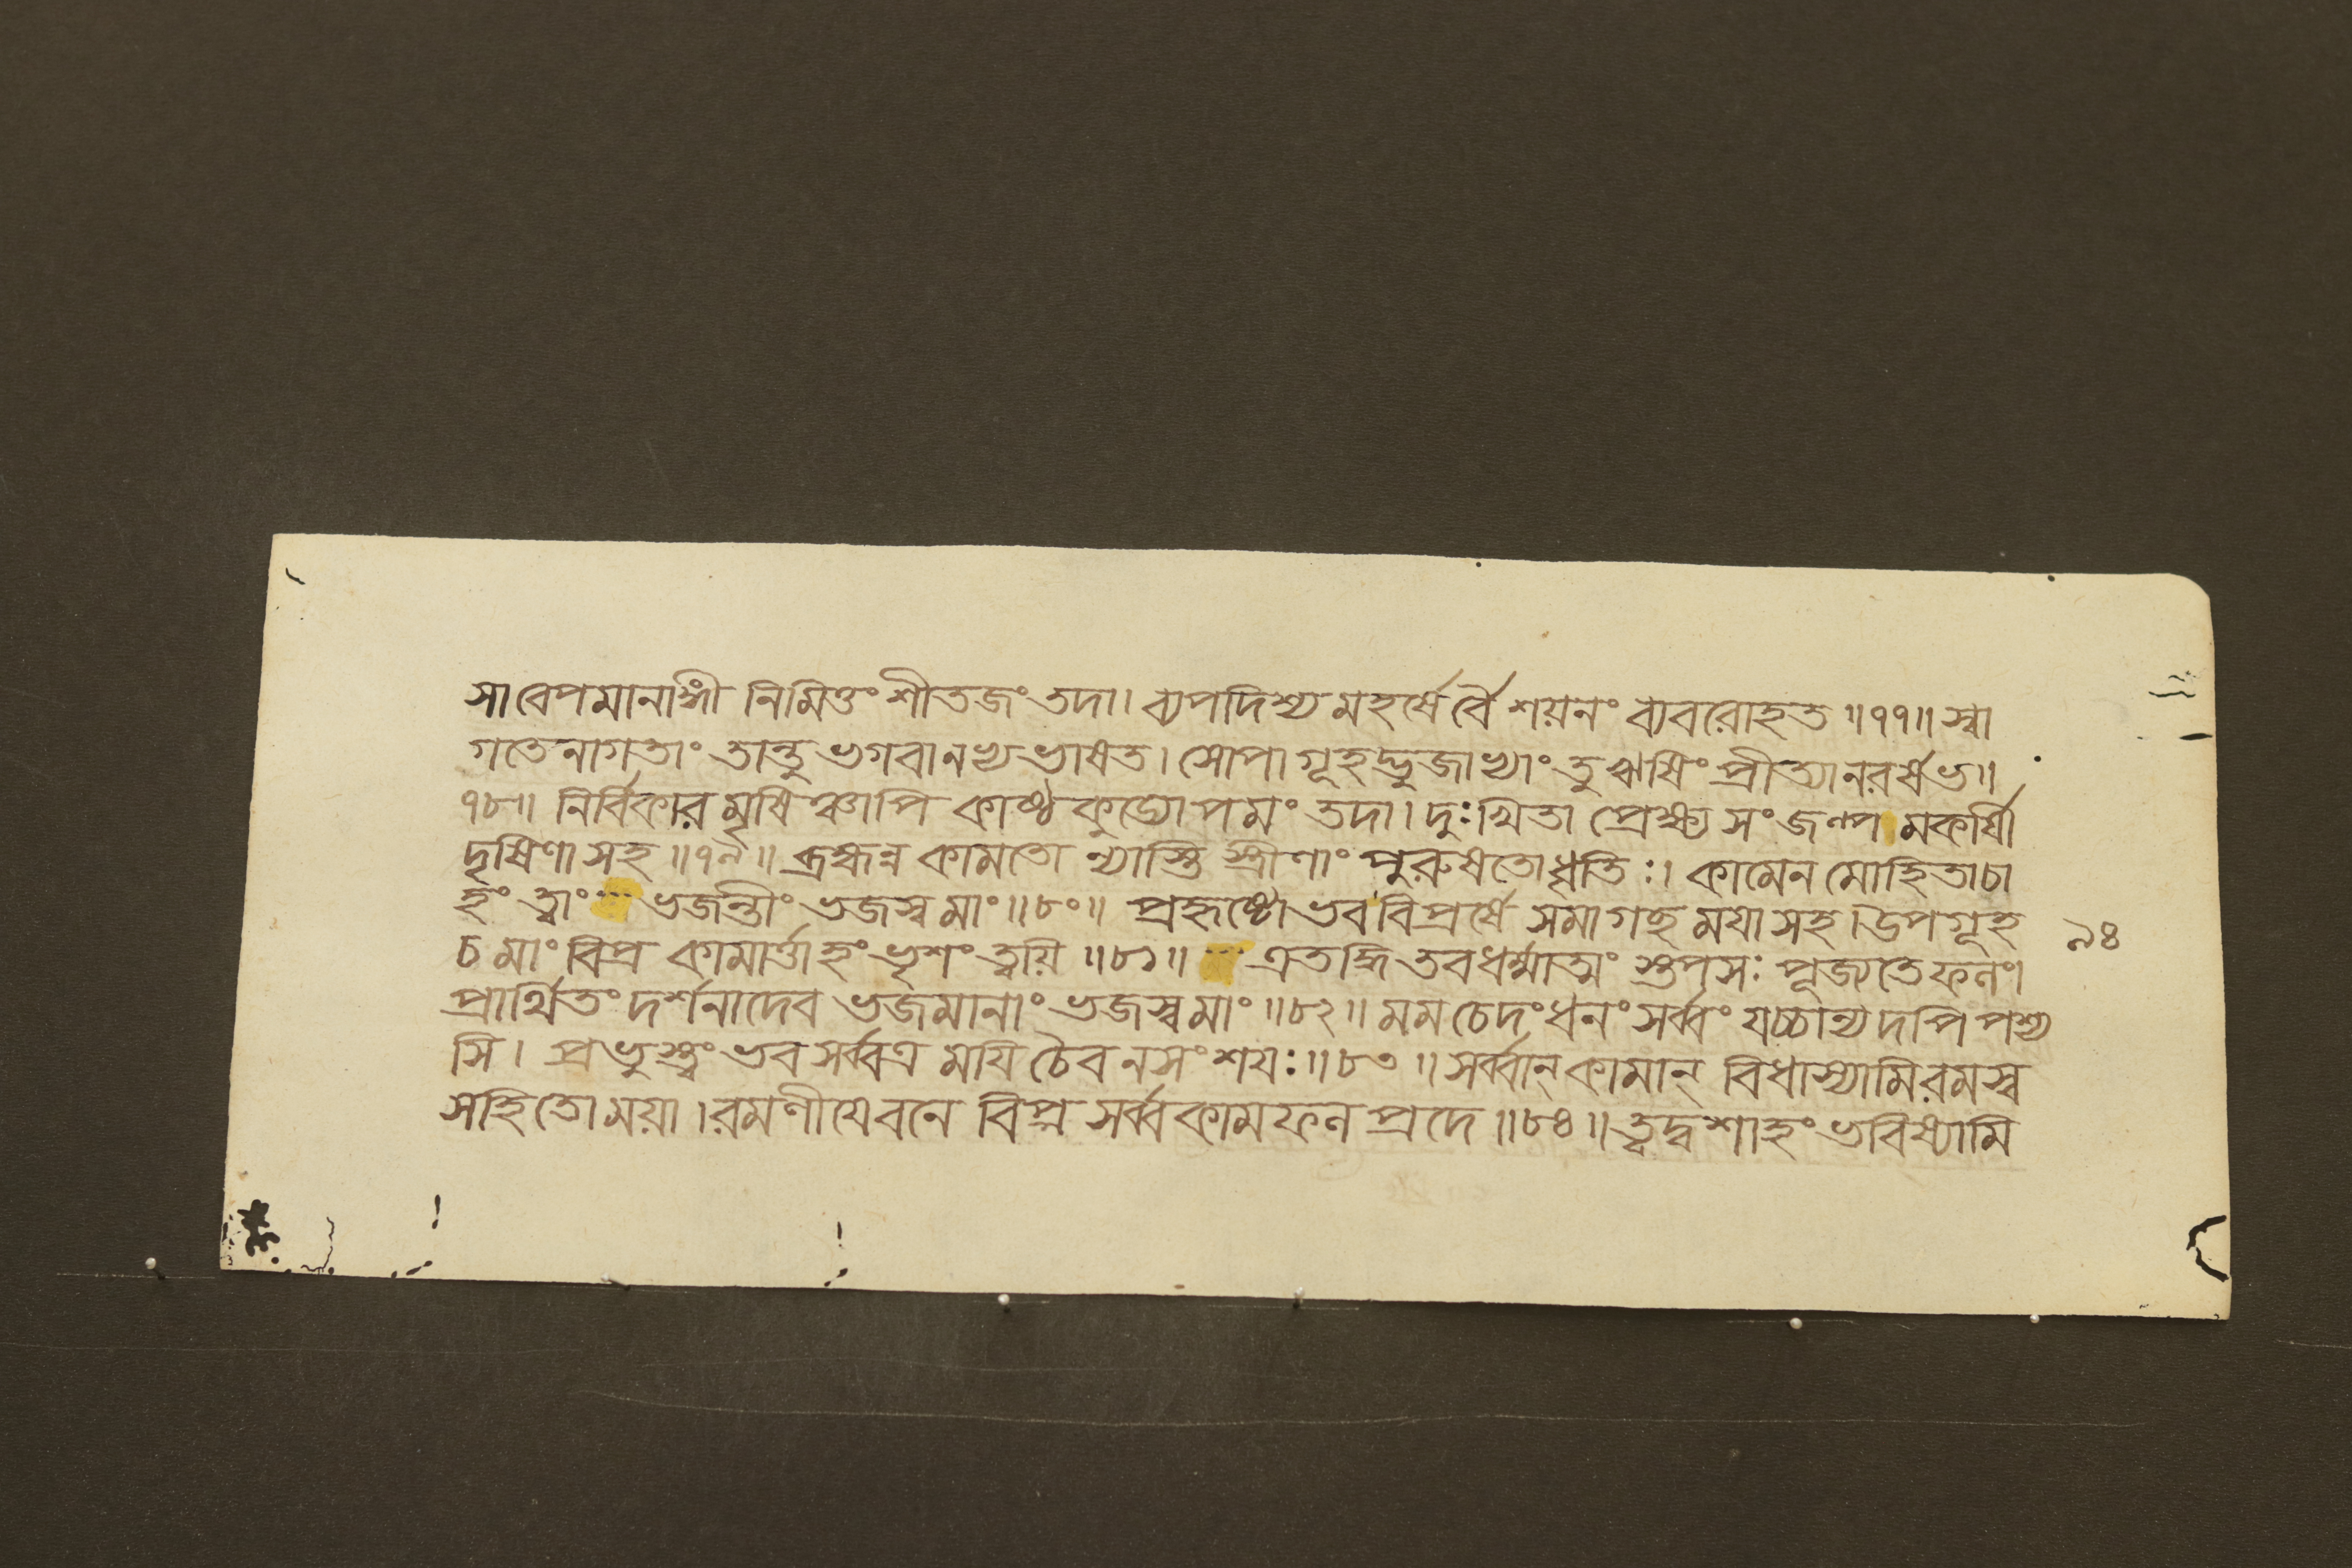 সাবেপমানাঙ্গী নিমিত্তং শীতজং তদা। ব্যপদিশ্য মহর্ষের্বৈ শয়নং ব্যবরোহত ॥৭৭॥ স্বা
গতেনাগতাং তান্তু ভগবানভ্যভাষত। সোপাগূহদ্ভুজাভ্যাং তু ঋষিং প্রীত্যানরর্ষভ॥
৭৮॥ নির্বিকারমৃষিঞ্চাপি কাষ্ঠকুড্যোপমং তদা। দুঃখিতা প্রেক্ষ্য সংজল্প মকর্ষী
দৃষিণা সহ ॥৭৯॥ ব্রহ্মন্ন কামতো ন্যাস্তি স্ত্রীণাং পুরুষতোধৃতিঃ। কামেন মোহিতাচা
হং ত্বাং ভজন্তীং ভজস্ব মাং॥৮০॥ প্রহৃষ্টো ভব বিপ্রর্ষে সমাগছ ময়া সহ। উপগূহ
চ মাং বিপ্র কামার্ত্তাহং ভৃশং ত্বয়ি ॥৮১॥ এতদ্ধি তবধর্ম্মাত্মং স্তপসঃ পূজ্যতে ফলং।
প্রার্থিতং দর্শনাদেব ভজমানাং ভজস্ব মাং ॥৮২॥ মম চেদং ধনং সর্ব্বং যচ্চান্যদপি পশ্য
সি। প্রভুস্ত্বং ভব সর্ব্বত্র ময়ি চৈব ন সংশয়ঃ॥৮৩॥ সর্ব্বান্ কামান্ বিধাস্যামি রমস্ব
সহিতো ময়া। রমণীয়ে বনে বিপ্র সর্ব্বকামফল প্রদে ॥৮৪॥ ত্বদ্বশাহং ভবিষ্যামি
৯৪